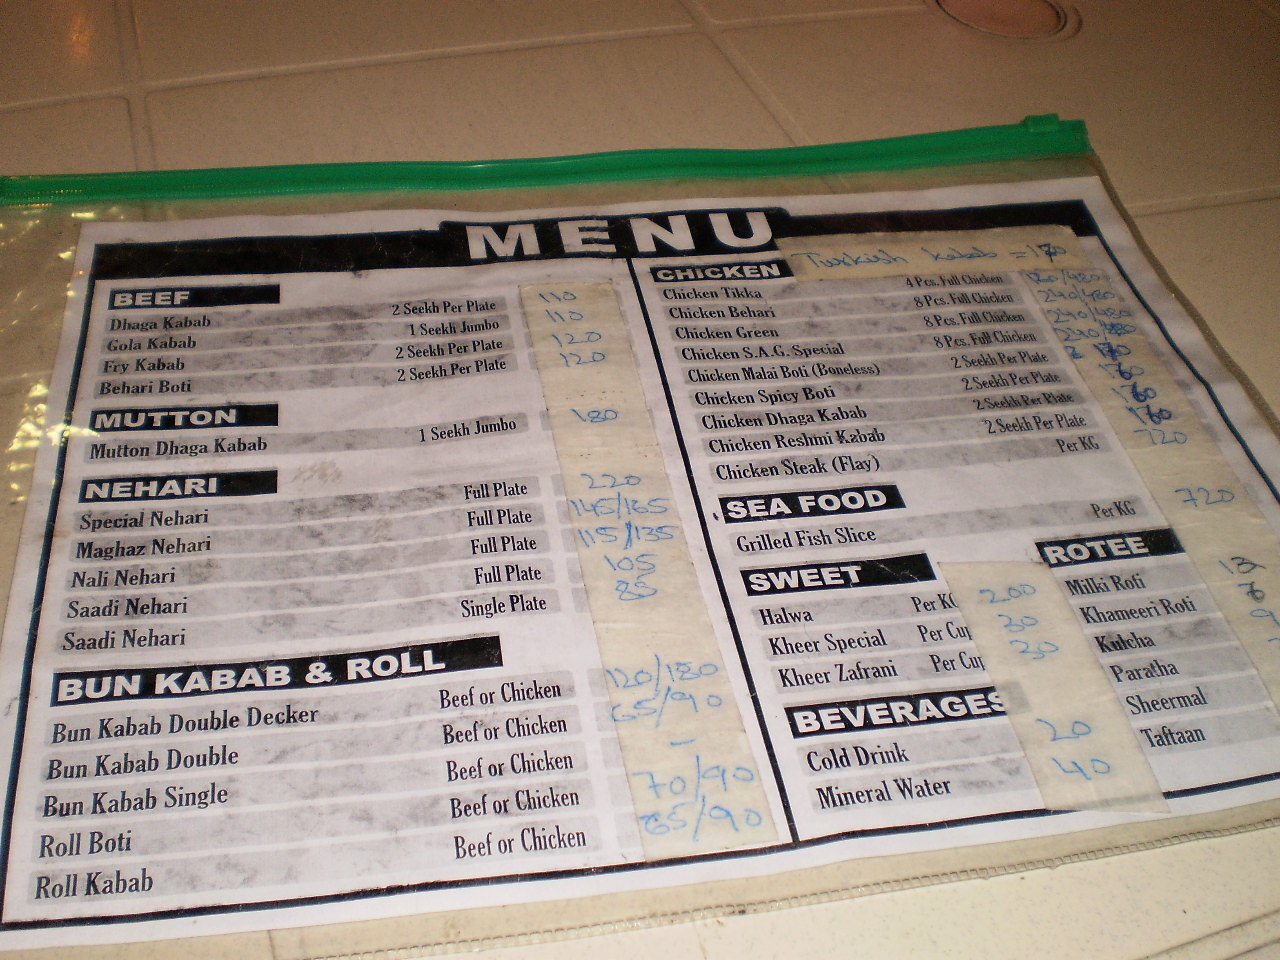 MENU
BEEF
Dhaga Kabab 2 Seekh Per Plate 110
Gola Kabab 1 Seekh Jumbo 110
Fry Kabab 2 Seekh Per Plate 120
Behari Boti 2 Seekh Per Plate 120
MUTTON
Mutton Dhaga Kabab 1 Seekh Jumbo 180
NEHARI
Special Nehari Full Plate 220
Maghaz Nehari Full Plate 145/165
Nali Nehari Full Plate 115/135
Saadi Nehari Full Plate 105
Saadi Nehari Single Plate 85
BUN KABAB & ROLL
Bun Kabab Double Decker Beef or Chicken 120/180
Bun Kabab Double Beef or Chicken 65/90
Bun Kabab Single Beef or Chicken –
Roll Boti Beef or Chicken 70/90
Roll Kabab Beef or Chicken 65/90
CHICKEN Turkish kabab =
Chicken Tikka 4 Pcs. Full Chicken
Chicken Behari 8 Pcs. Full Chicken 240/480
Chicken Green 8 Pcs. Full Chicken 240/480
Chicken S.A.G. Special 8 Pcs. Full Chicken 240/480
Chicken Malai Boti (Boneless) 2 Seekh Per Plate
Chicken Spicy Boti 2 Seekh Per Plate 160
Chicken Dhaga Kabab 2 Seekh Per Plate 160
Chicken Reshmi Kabab 2 Seekh Per Plate 160
Chicken Steak (Flay) Per KG 720
SEA FOOD
Grilled Fish Slice Per KG 720
SWEET
Halwa Per KG 200
Kheer Special Per Cup 30
Kheer Zafrani Per Cup 30
BEVERAGES
Cold Drink 20
Mineral Water 40
ROTEE
Milki Roti
Khameeri Roti
Kulcha
Paratha
Sheermal
Taftaan